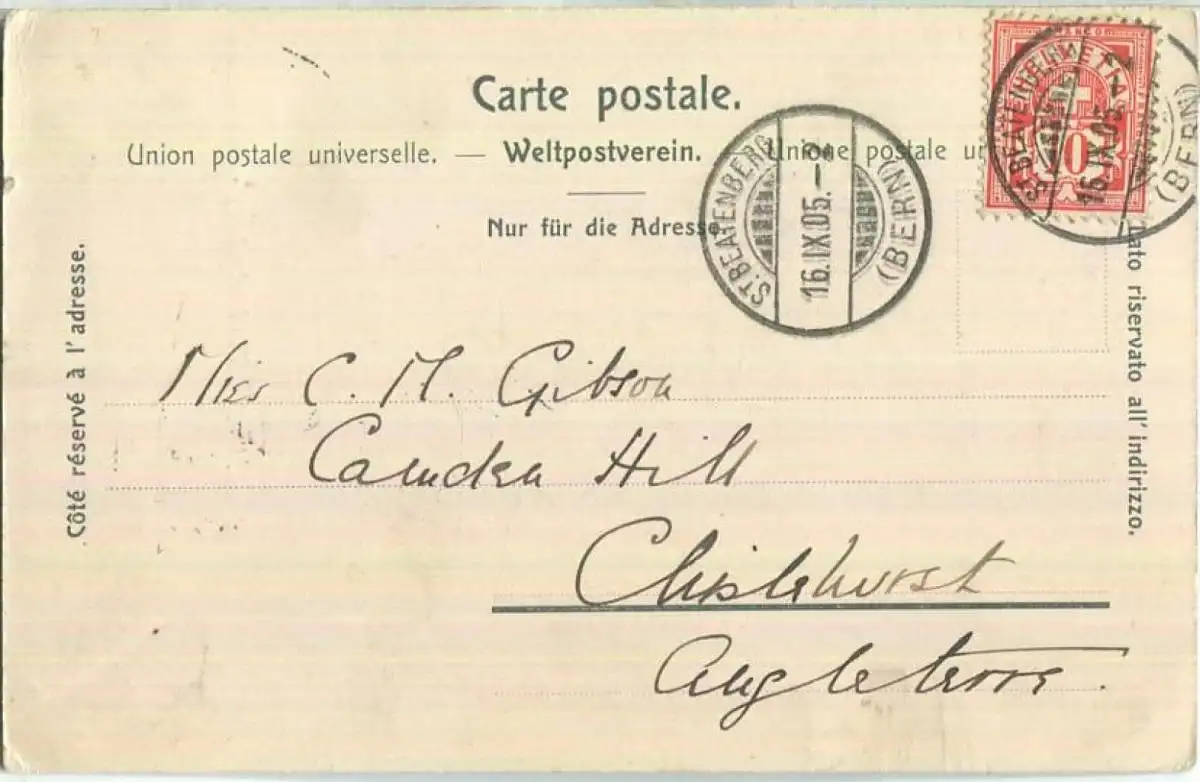 Carte postale.
Union postale universelle. — Weltpostverein. — Unione postale un
Nur für die Adresse.
Côté réservé à l'adresse.
Lato riservato all' indirizzo.
ST. BEATENBERG
16.IX.05.–8
(BERN)
HELVETIA
FRANCO
10
ST. BEATENBERG
16.IX.05.
(BERN)
Miss C. M. Gibson
Camden Hill
Chislehurst
Angleterre.